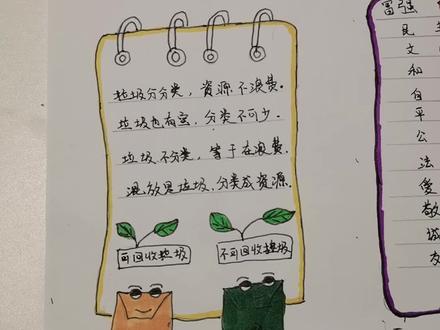 垃圾分分类，资源不浪费.
垃圾也有宝，分类不可少.
垃圾不分类，等于在浪费.
混放是垃圾，分类成资源.
可回收垃圾
不可回收垃圾
富强
民主
文
和
自
平
公
法
爱
敬
诚
友